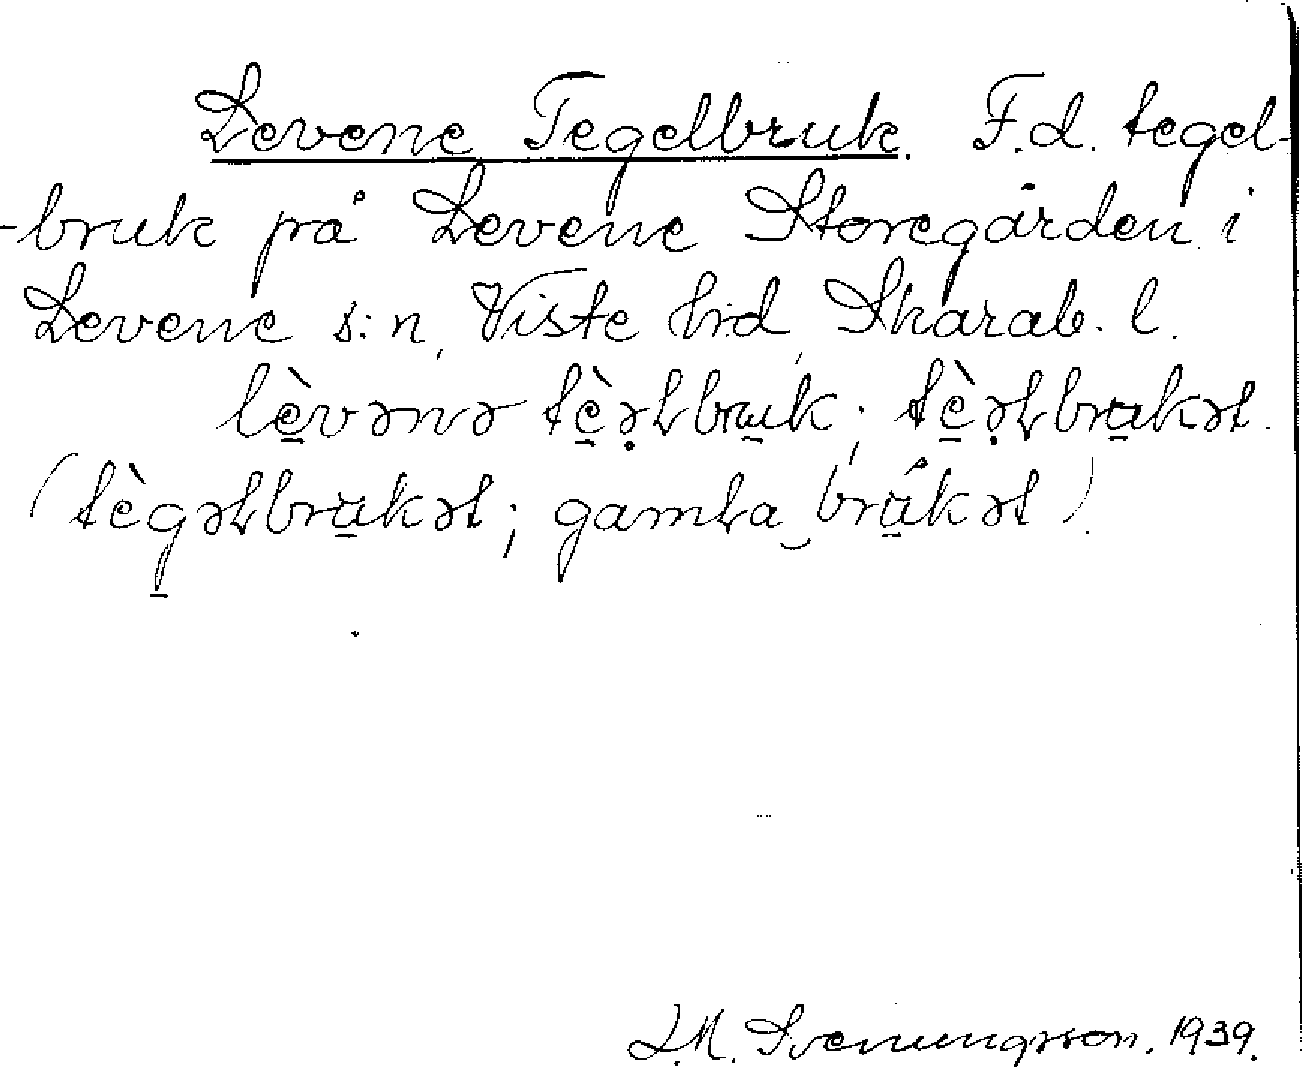 Levene Tegelbruk. F.d. tegel-
-bruk på Levene Storegården i
Levene s:n, Viste hd, Skarab. l.
lèvənə tèəɫbruk; tèəɫbrukət.
(tègəɫbrukət; gamɫa brúkət).
J.M. Svenungsson. 1939.